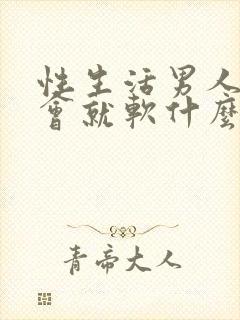 性生活男人
會就軟什麼
青帝大人